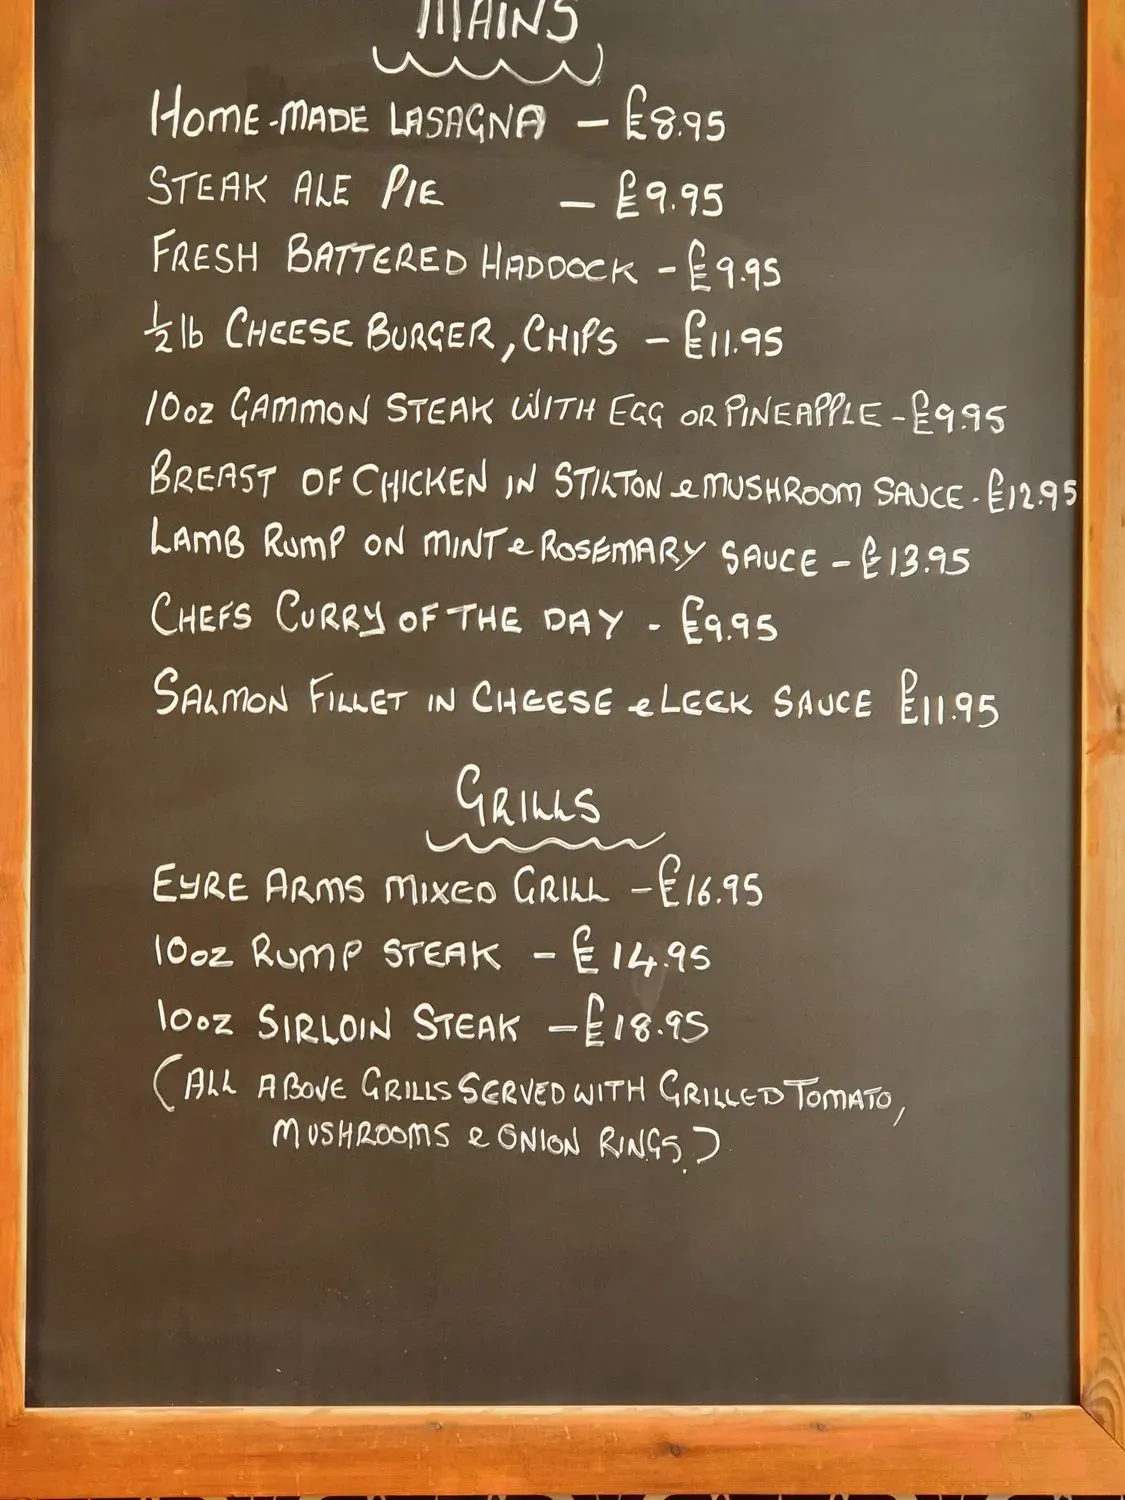 MAINS
HOME-MADE LASAGNA - £8.95
STEAK ALE PIE - £9.95
FRESH BATTERED HADDOCK - £9.95
½ lb CHEESE BURGER, CHIPS - £11.95
10oz GAMMON STEAK WITH EGG OR PINEAPPLE - £9.95
BREAST OF CHICKEN IN STILTON & MUSHROOM SAUCE - £12.95
LAMB RUMP ON MINT & ROSEMARY SAUCE - £13.95
CHEFS CURRY OF THE DAY - £9.95
SALMON FILLET IN CHEESE & LEEK SAUCE £11.95
GRILLS
EYRE ARMS MIXED GRILL - £16.95
10oz RUMP STEAK - £14.95
10oz SIRLOIN STEAK - £18.95
(ALL ABOVE GRILLS SERVED WITH GRILLED TOMATO,
MUSHROOMS & ONION RINGS.)